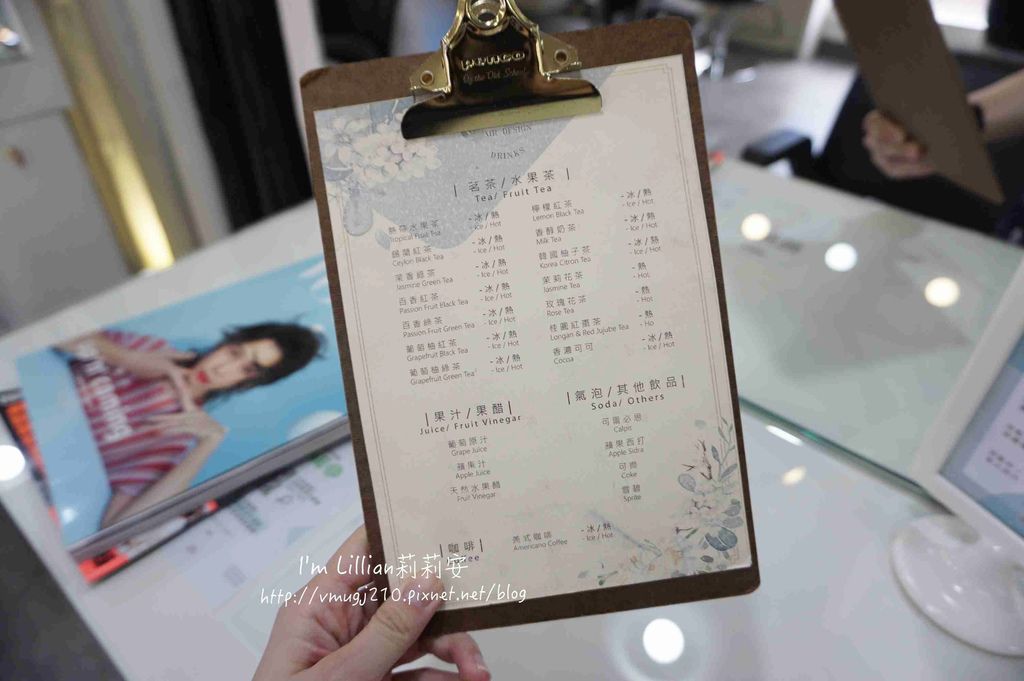 By the Old School
AIR DESIGN
DRINKS
| 茗茶/水果茶 |
Tea/ Fruit Tea
熱帶水果茶 - 冰/熱
Tropical Fruit Tea - Ice / Hot
錫蘭紅茶 - 冰/熱
Ceylon Black Tea - Ice / Hot
茉香綠茶 - 冰/熱
Jasmine Green Tea - Ice / Hot
百香紅茶 - 冰/熱
Passion Fruit Black Tea - Ice / Hot
百香綠茶 - 冰/熱
Passion Fruit Green Tea - Ice / Hot
葡萄柚紅茶 - 冰/熱
Grapefruit Black Tea - Ice / Hot
葡萄柚綠茶 - 冰/熱
Grapefruit Green Tea - Ice / Hot
檸檬紅茶 - 冰/熱
Lemon Black Tea - Ice / Hot
香醇奶茶 - 冰/熱
Milk Tea - Ice / Hot
韓國柚子茶 - 冰/熱
Korea Citron Tea - Ice / Hot
茉莉花茶 - 熱
Jasmine Tea - Hot
玫瑰花茶 - 熱
Rose Tea - Hot
桂圓紅棗茶 - 熱
Longan & Red Jujube Tea - Ho
香濃可可 - 冰/熱
Cocoa - Ice / Hot
| 果汁/果醋 |
Juice/ Fruit Vinegar
葡萄原汁
Grape Juice
蘋果汁
Apple Juice
天然水果醋
Fruit Vinegar
| 氣泡/其他飲品 |
Soda/ Others
可爾必思
Calpis
蘋果西打
Apple Sidra
可樂
Coke
雪碧
Sprite
| 咖啡 |
美式咖啡 - 冰/熱
Americano Coffee - Ice / Hot
I'm Lillian莉莉安
http://vmugj210.pixnet.net/blog